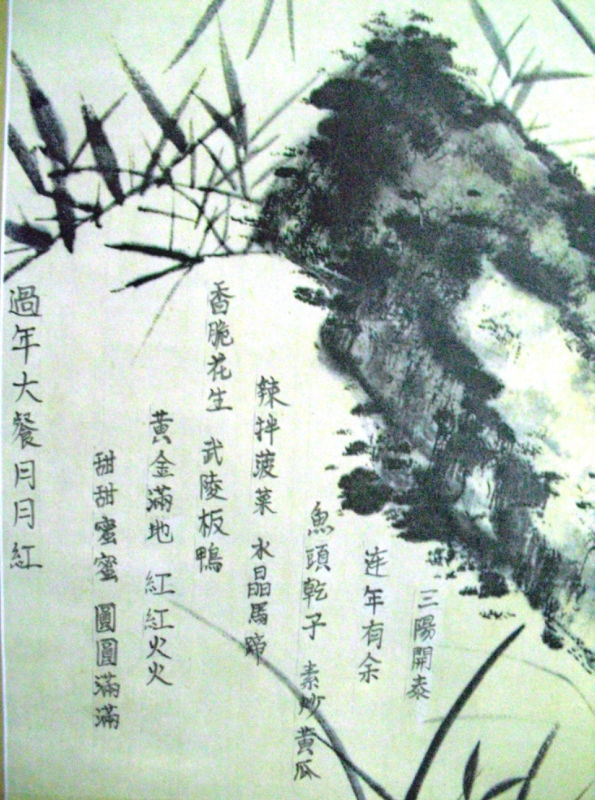 三陽開泰
连年有余
魚頭乾子 素炒黃瓜
辣拌菠菜 水晶馬蹄
香脆花生 武陵板鴨
黃金滿地 紅紅火火
甜甜蜜蜜 圓圓滿滿
過年大餐月月紅